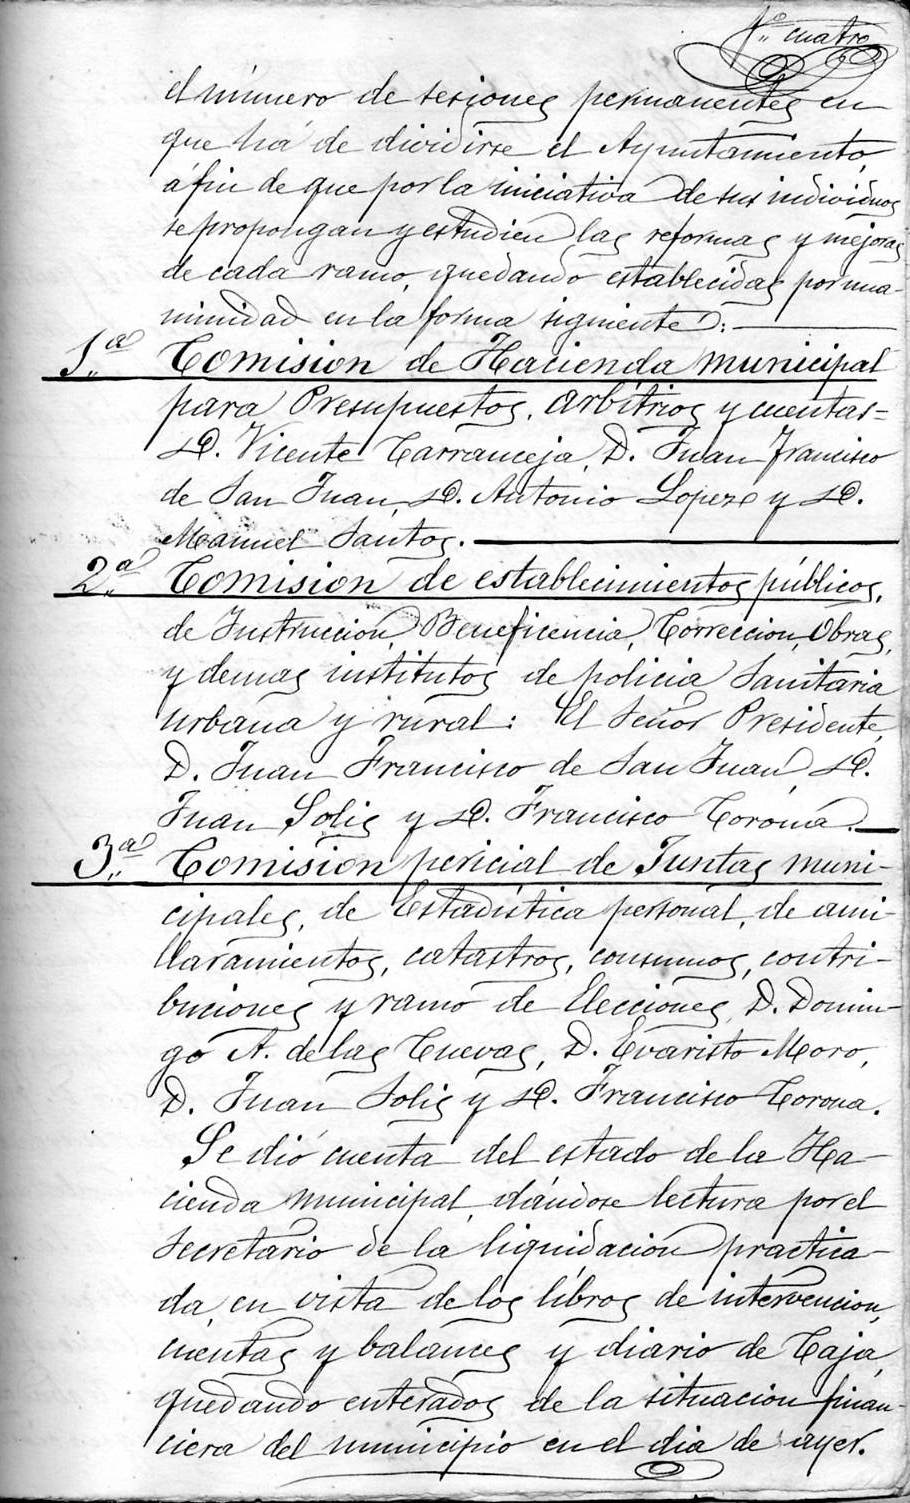 Nº cuatro
el número de sesiones permanentes en
que há de dividirse el Ayuntamiento,
áfin de que por la iniciativa de sus individuos
se propongan y estudien las reformas y mejoras
de cada ramo, quedando establecidas por una-
nimidad en la forma siguiente:
1.ª Comision de Hacienda municipal
para Presupuestos, arbítrios y cuentas=
D. Vicente Carranceja, D. Juan Francisco
de San Juan, D. Antonio Lopez y D.
Manuel Santos.
2.ª Comision de establecimientos públicos,
de Instruccion, Beneficencia, Correccion, Obras,
y demas institutos de policia Sanitaria
urbana y rural: El Señor Presidente,
D. Juan Francisco de San Juan, D.
Juan Solis y D. Francisco Corona.
3.ª Comision pericial de Juntas muni-
cipales, de Estadística personal, de ami-
llaramientos, catastros, consumos, contri-
buciones y ramo de Elecciones, D. Domin-
go A. de las Cuevas, D. Evaristo Moro,
D. Juan Solis y D. Francisco Corona.
Se dió cuenta del estado de la Ha-
cienda municipal, dándose lectura por el
Secretario de la liquidacion practica-
da, en vista de los libros de intervencion,
cuentas y balances y diario de Caja,
quedando enterados de la situacion finan-
ciera del municipio en el dia de ayer.